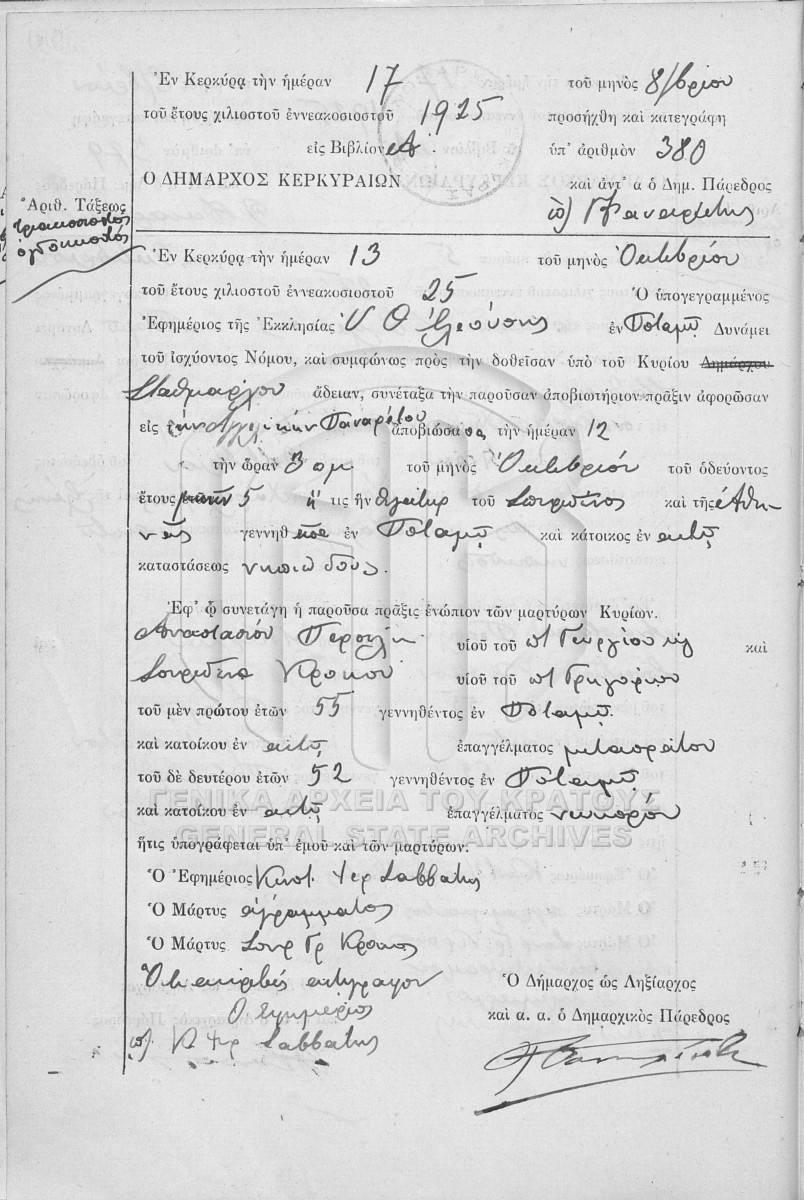 Ἐν Κερκύρᾳ τὴν ἡμέραν 17 τοῦ μηνὸς 8/βρίου
τοῦ ἔτους χιλιοστοῦ ἐννεακοσιοστοῦ 1925 προσήχθη καὶ κατεγράφη
εἰς Βιβλίον ὑπ' ἀριθμὸν 380
Ο ΔΗΜΑΡΧΟΣ ΚΕΡΚΥΡΑΙΩΝ καὶ ἀντ' α ὁ Δημ. Πάρεδρος
Ἀριθ. Τάξεως
τριακοσιοστός
ὀγδοηκοστός
Ἐν Κερκύρᾳ τὴν ἡμέραν 13 τοῦ μηνὸς Ὀκτωβρίου
τοῦ ἔτους χιλιοστοῦ ἐννεακοσιοστοῦ 25 Ὁ ὑπογεγραμμένος
Ἐφημέριος τῆς Ἐκκλησίας Υ Θ Ἐλεούσης ἐν Ποταμῷ Δυνάμει
τοῦ ἰσχύοντος Νόμου, καὶ συμφώνως πρὸς τὴν δοθεῖσαν ὑπὸ τοῦ Κυρίου Δημάρχου
Σταθμάρχου ἄδειαν, συνέταξα τὴν παροῦσαν ἀποβιωτήριον πρᾶξιν ἀφορῶσαν
εἰς τὴν Ἀγγελικὴν Παναρέτου ἀποβιώσασας τὴν ἡμέραν 12
τὴν ὥραν 3 πμ τοῦ μηνὸς Ὀκτωβρίου τοῦ ὁδεύοντος
ἔτους 5 ἥ τις ἦν θυγάτηρ τοῦ Σπυρίδωνος καὶ τῆς Ἀθη-
νᾶς γεννηθεῖσα ἐν Ποταμῷ καὶ κάτοικος ἐν αὐτῷ
καταστάσεως νηπιώδους.
Ἐφ' ᾧ συνετάγη ἡ παροῦσα πρᾶξις ἐνώπιον τῶν μαρτύρων Κυρίων.
Ἀναστασίου Περούλη υἱοῦ τοῦ πτ Γεωργίου καὶ
Σπυρίδωνα Κρόκου υἱοῦ τοῦ πτ Γρηγορίου
τοῦ μὲν πρώτου ἐτῶν 55 γεννηθέντος ἐν Ποταμῷ
καὶ κατοίκου ἐν αὐτῷ ἐπαγγέλματος μεταπράτου
τοῦ δὲ δευτέρου ἐτῶν 52 γεννηθέντος ἐν Ποταμῷ
καὶ κατοίκου ἐν αὐτῷ ἐπαγγέλματος νεωκόρου
ΓΕΝΙΚΑ ΑΡΧΕΙΑ ΤΟΥ ΚΡΑΤΟΥΣ
GENERAL STATE ARCHIVES
ἥτις ὑπογράφεται ὑπ' ἐμοῦ καὶ τῶν μαρτύρων.
Ὁ Ἐφημέριος Κωσ. Ἱερ Σαββανης
Ὁ Μάρτυς ἀγράμματος
Ὁ Μάρτυς Σπυρ Γρ Κροκος
Ὅτι ἀκριβὲς ἀντίγραφον
Ὁ Ἐφημέριος
Κ Ἱερ Σαββανης
Ὁ Δήμαρχος ὡς Ληξίαρχος
καὶ α. α. ὁ Δημαρχικὸς Πάρεδρος